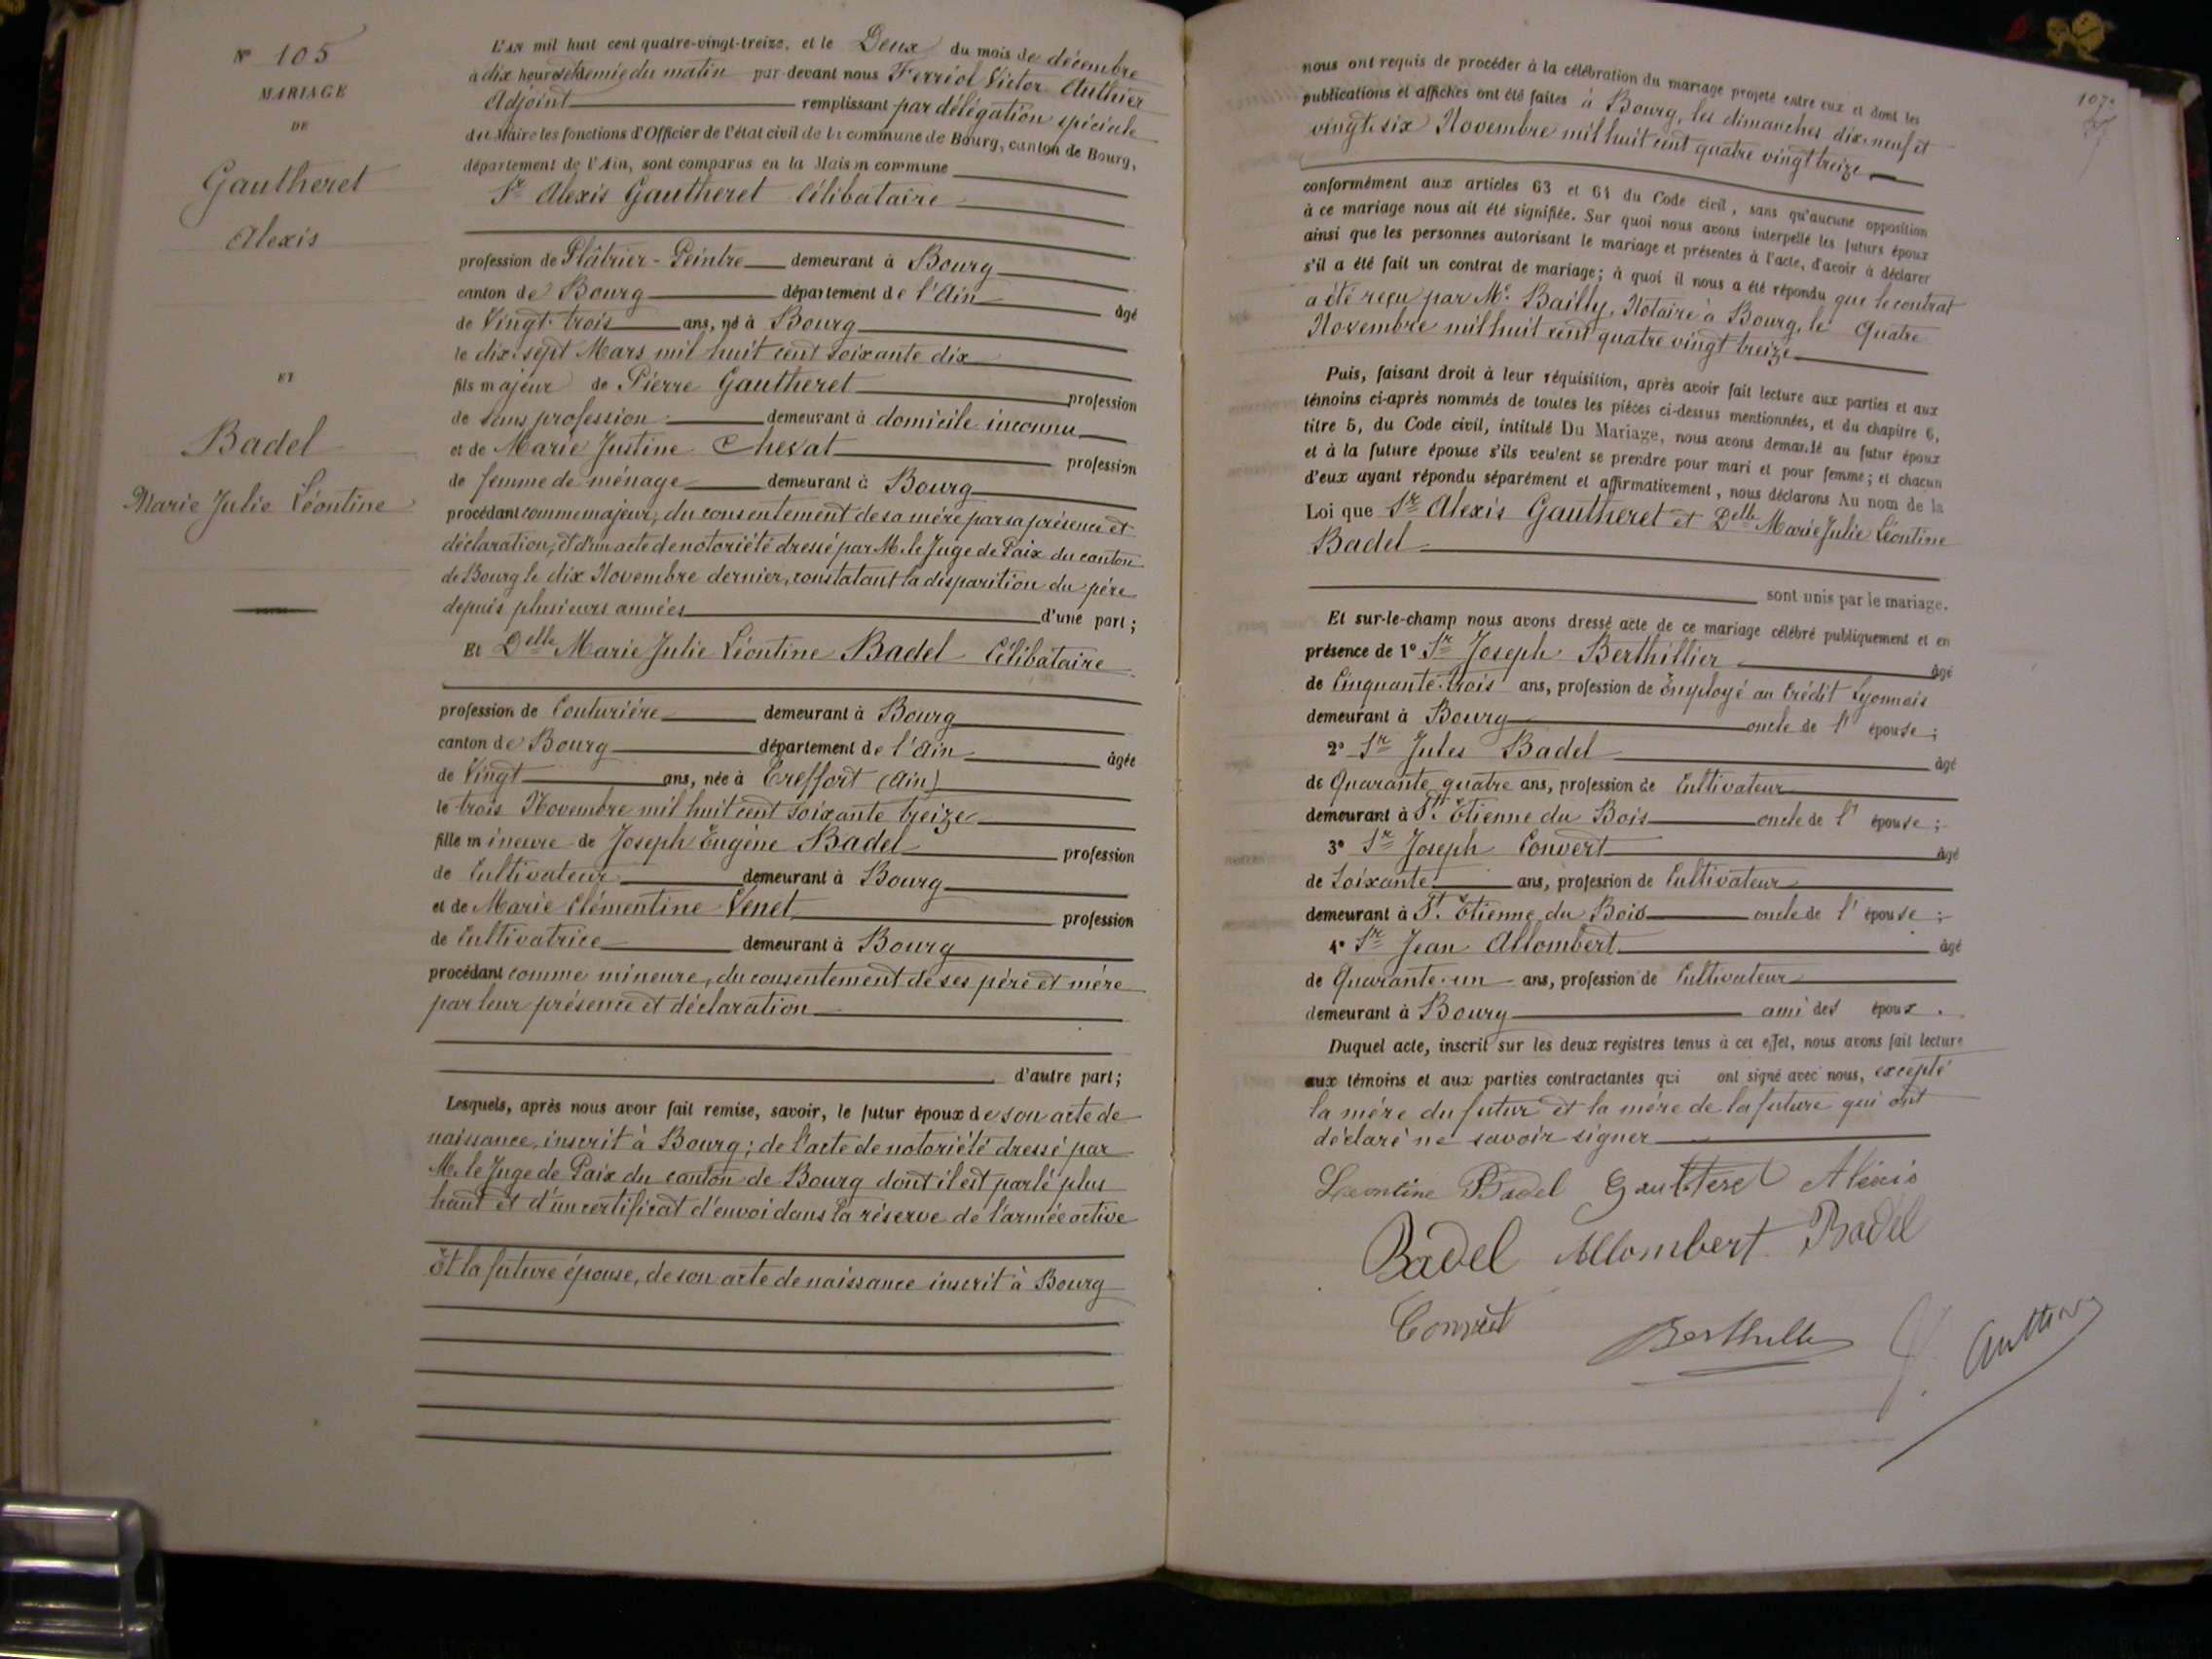 N° 105
MARIAGE
DE
Gautheret
Alexis
ET
Badel
Marie Julie Léontine
L'AN mil huit cent quatre-vingt-treize, et le Deux du mois de décembre
à dix heures et demie du matin par-devant nous Ferréol Victor Authier
Adjoint remplissant par délégation spéciale
du Maire les fonctions d'Officier de l'état civil de la commune de Bourg, canton de Bourg,
département de l'Ain, sont comparus en la Maison commune
Sr Alexis Gautheret Célibataire
profession de Plâtrier-Peintre demeurant à Bourg
canton de Bourg département de l'Ain âgé
de Vingt-trois ans, né à Bourg
le dix-sept Mars mil huit cent soixante dix
fils majeur de Pierre Gautheret profession
de sans profession demeurant à domicile inconnu
et de Marie Justine Chevat profession
de femme de ménage demeurant à Bourg
procédant comme majeur, du consentement de sa mère par sa présence et
déclaration, et d'un acte de notoriété dressé par M. le Juge de Paix du canton
de Bourg le dix Novembre dernier, constatant la disparition du père
depuis plusieurs années d'une part;
Et Delle Marie Julie Léontine Badel Célibataire
profession de Couturière demeurant à Bourg
canton de Bourg département de l'Ain âgée
de Vingt ans, née à Treffort (Ain)
le trois Novembre mil huit cent soixante treize
fille mineure de Joseph Eugène Badel profession
de Cultivateur demeurant à Bourg
et de Marie Clémentine Venet profession
de Cultivatrice demeurant à Bourg
procédant comme mineure, du consentement de ses père et mère
par leur présence et déclaration
d'autre part;
Lesquels, après nous avoir fait remise, savoir, le futur époux de son acte de
naissance, inscrit à Bourg; de l'acte de notoriété dressé par
M. le Juge de Paix du canton de Bourg dont il est parlé plus
haut et d'un certificat d'envoi dans la réserve de l'armée active
Et la future épouse, de son acte de naissance inscrit à Bourg
107
nous ont requis de procéder à la célébration du mariage projeté entre eux et dont les
publications et affiches ont été faites à Bourg, les dimanches dix-neuf et
vingt-six Novembre mil huit cent quatre vingt treize
conformément aux articles 63 et 64 du Code civil, sans qu'aucune opposition
à ce mariage nous ait été signifiée. Sur quoi nous avons interpellé les futurs époux
ainsi que les personnes autorisant le mariage et présentes à l'acte, d'avoir à déclarer
s'il a été fait un contrat de mariage; à quoi il nous a été répondu que le contrat
a été reçu par Me. Bailly, Notaire à Bourg, le Quatre
Novembre mil huit cent quatre vingt treize
Puis, faisant droit à leur réquisition, après avoir fait lecture aux parties et aux
témoins ci-après nommés de toutes les pièces ci-dessus mentionnées, et du chapitre 6,
titre 5, du Code civil, intitulé Du Mariage, nous avons demandé au futur époux
et à la future épouse s'ils veulent se prendre pour mari et pour femme; et chacun
d'eux ayant répondu séparément et affirmativement, nous déclarons Au nom de la
Loi que Sr Alexis Gautheret et Delle Marie Julie Léontine
Badel
sont unis par le mariage.
Et sur-le-champ nous avons dressé acte de ce mariage célébré publiquement et en
présence de 1° Sr Joseph Berthillier âgé
de Cinquante-trois ans, profession de Employé au Crédit Lyonnais
demeurant à Bourg oncle de l'épouse;
2° Sr Jules Badel âgé
de Quarante quatre ans, profession de Cultivateur
demeurant à St. Etienne du Bois oncle de l'épouse;
3° Sr Joseph Convert âgé
de Soixante ans, profession de Cultivateur
demeurant à St. Etienne du Bois oncle de l'épouse;
4° Sr Jean Allombert âgé
de Quarante-un ans, profession de Cultivateur
demeurant à Bourg ami des époux.
Duquel acte, inscrit sur les deux registres tenus à cet effet, nous avons fait lecture
aux témoins et aux parties contractantes qui ont signé avec nous, excepté
la mère du futur et la mère de la future qui ont
déclaré ne savoir signer
Leontine Badel Gautheret Alexis
Badel Allombert Badel
Convert Berthillier F. Authier